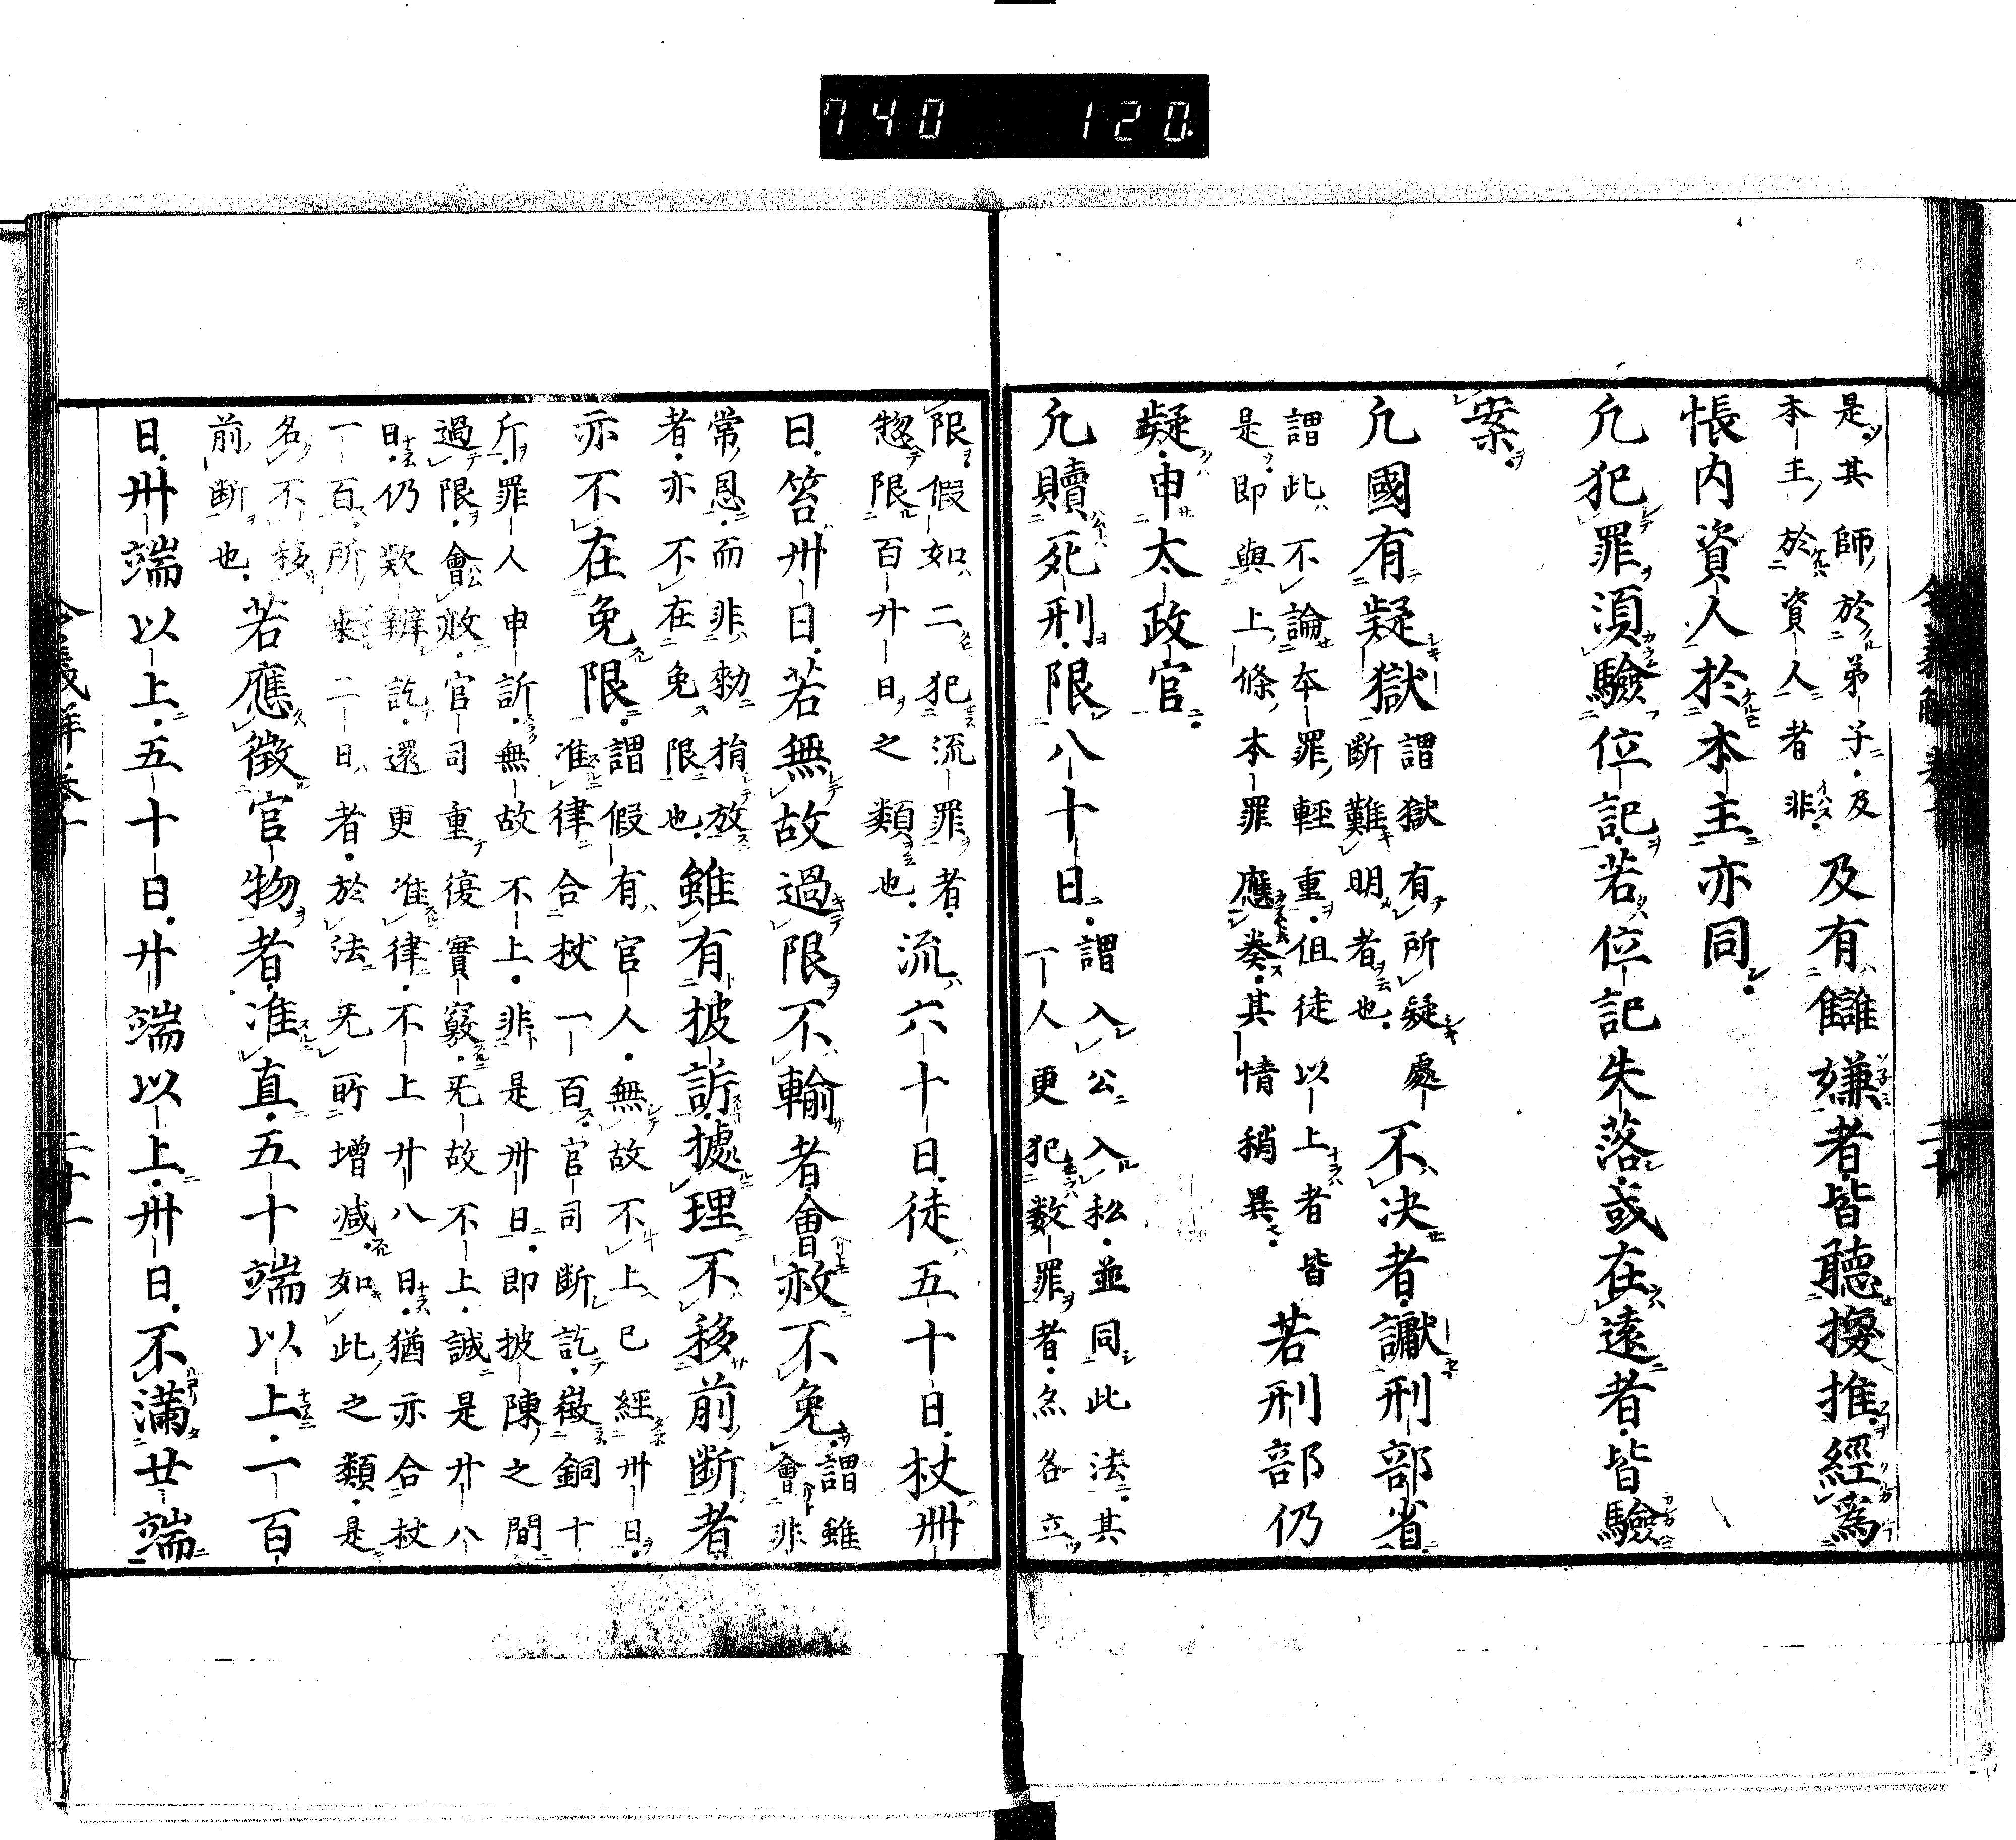 是其師於弟子及
本主於資人者非
及有讎嫌者皆聽換推經爲
帳内資人於本主亦同
凡犯罪須驗位記若位記失落或在遠者皆驗
案
凡國有疑獄
謂獄有所疑處
断難明者也
不決者讞刑部省
謂此不論本罪輕重但徒以上者皆
是即與上條本罪應奏其情稍異
若刑部仍
疑申太政官
凡贖死刑限八十日
謂入公入私並同此法其
一人更犯数罪者亦各立
限假如二犯流罪者
惣限百廿日之類也
流六十日徒五十日杖卌
日笞卅日若無故過限不輸者會赦不免
謂雖
會非
常恩而非勅指放
者亦不在免限也
雖有披訴據理不移前断者
亦不在免限
謂假有官人無故不上已經卅日
准律合杖一百官司断訖徵銅十
斤罪人申訴無故不上非是卅日即披陳之間
過限會赦官司重復實竅无故不上誠是廿八
日仍欵辨訖還更准律不上廿八日猶亦合杖
一百所 二日者於法无所増減如此之類是
名不移
前断也
若應徴官物者准直五十端以上一百
日卅端以上五十日廿端以上卅日不滿廿端